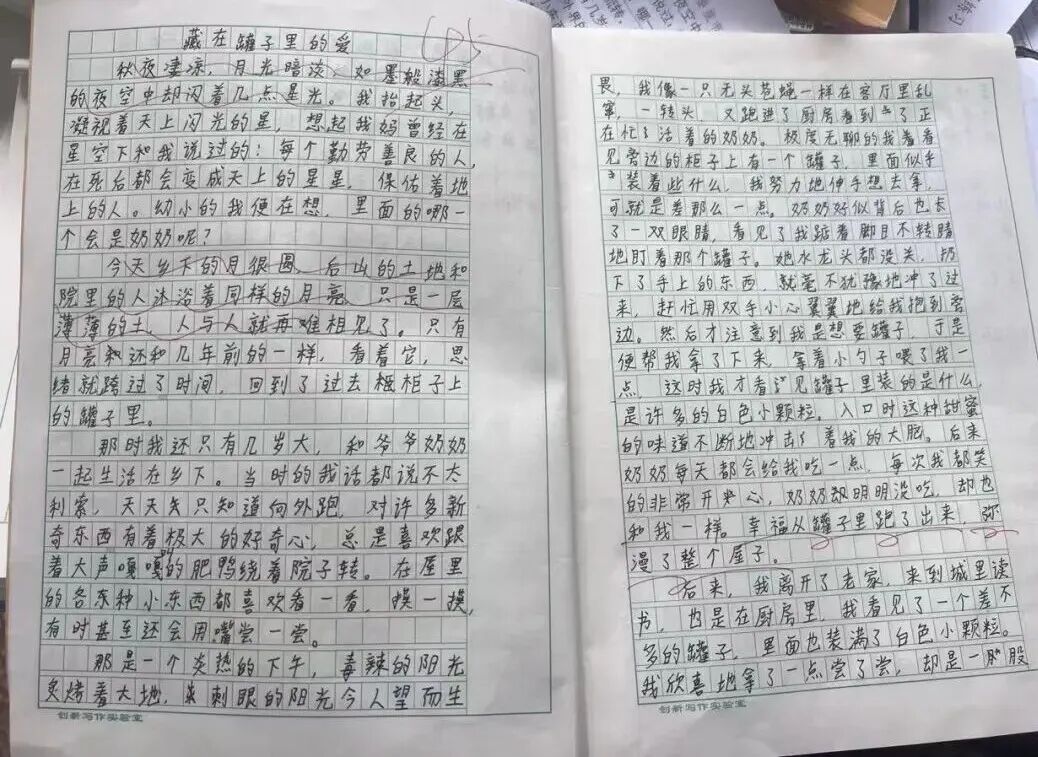 藏在罐子里的爱
秋夜凄凉，月光暗淡，如墨般漆黑
的夜空中却闪着几点星光。我抬起头，
凝视着天上闪光的星，想起我妈曾经在
星空下和我说过的：每个勤劳善良的人，
在死后都会变成天上的星星，保佑着地
上的人。幼小的我便在想，里面的哪一
个会是奶奶呢？
今天乡下的月很圆，后山的土地和
院里的人沐浴着同样的月亮，只是一层
薄薄的土，人与人就再难相见了。只有
月亮和还和几年前的一样，看着它，思
绪就跨过了时间，回到了过去柜子上
的罐子里。
那时我还只有几岁大，和爷爷奶奶
一起生活在乡下。当时的我话都说不大
利索，天天只知道向外跑，对许多新
奇东西有着极大的好奇心，总是喜欢跟
着大声嘎嘎的肥鸭绕着院子转。在屋里
的各种小东西都喜欢看一看，摸一摸，
有时甚至还会用嘴尝一尝。
那是一个炎热的下午，毒辣的阳光
炙烤着大地，刺眼的阳光令人望而生
畏，我像一只无头苍蝇一样在客厅里乱
窜，一转头，又跑进了厨房看到了正
在忙活着的奶奶。极度无聊的我看着看
见旁边的柜子上有一个罐子，里面似乎
装着些什么，我努力地伸手想去拿，
可就是差那么一点。奶奶好似背后也长
了一双眼睛，看见了我踮着脚目不转睛
地盯着那个罐子。她水龙头都没关，扔
下了手上的东西，就毫不犹豫地冲了过
来，赶忙用双手小心翼翼地给我抱到旁
边。然后才注意到我是想要罐子，于是
便帮我拿了下来，拿着小勺子喂了我一
点，这时我才看见罐子里装的是什么，
是许多的白色小颗粒。入口时这种甜蜜
的味道不断地冲击着我的大脑。后来
奶奶每天都会给我吃一点，每次我都笑
的非常开心，奶奶明明没吃，却也
和我一样。幸福从罐子里跑了出来，弥
漫了整个屋子。
后来，我离开了老家，来到城里读
书，也是在厨房里，我看见了一个差不
多的罐子，里面也装满了白色小颗粒。
我欣喜地拿了一点尝了尝，却是一股
创新写作实验室
创新写作实验室